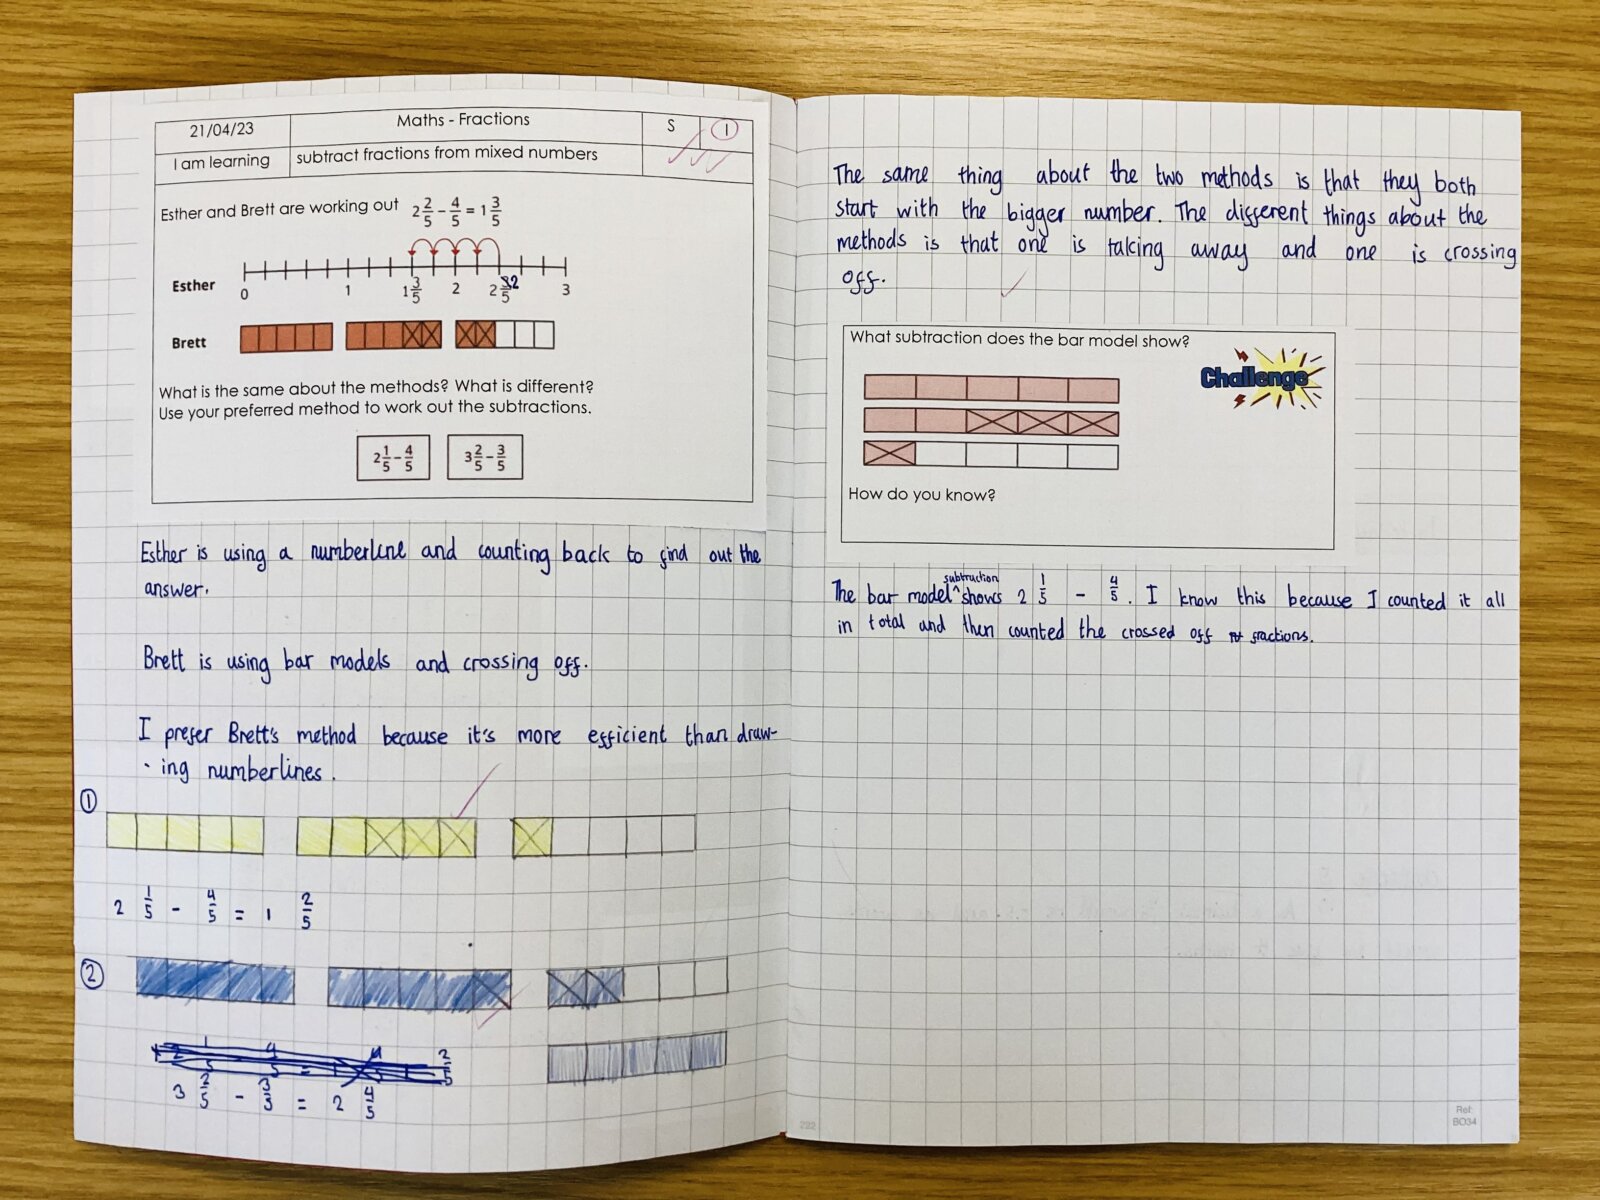 21/04/23 Maths - Fractions S 1
I am learning subtract fractions from mixed numbers
Esther and Brett are working out 2 2/5 - 4/5 = 1 3/5
Esther
0 1 1 3/5 2 2 2/5 3
Brett
What is the same about the methods? What is different?
Use your preferred method to work out the subtractions.
2 1/5 - 4/5 3 2/5 - 3/5
Esther is using a numberline and counting back to find out the
answer.
Brett is using bar models and crossing off.
I prefer Brett's method because it's more efficient than draw-
ing numberlines.
1
2 1/5 - 4/5 = 1 2/5
2
3 2/5 - 3/3 = 2 4/5
222
The same thing about the two methods is that they both
start with the bigger number. The different things about the
methods is that one is taking away and one is crossing
off.
What subtraction does the bar model show?
Challenge
How do you know?
The bar model subtraction shows 2 1/5 - 4/5. I know this because I counted it all
in total and then counted the crossed off fractions.
Ref:
BO34